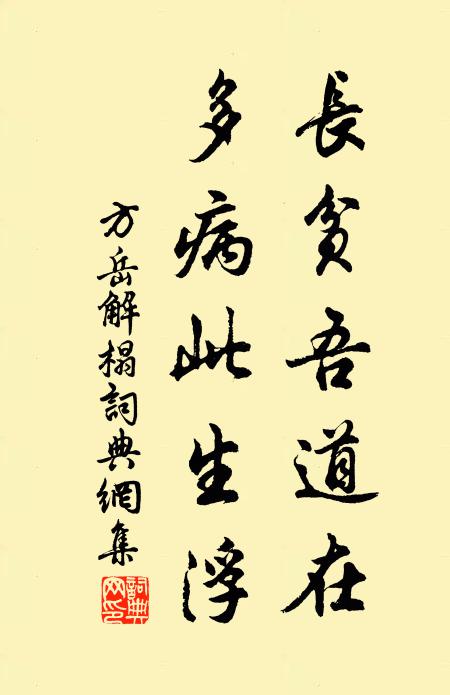 長貧吾道在
多病此生浮
方岳解榻詞典網集
詞典網印